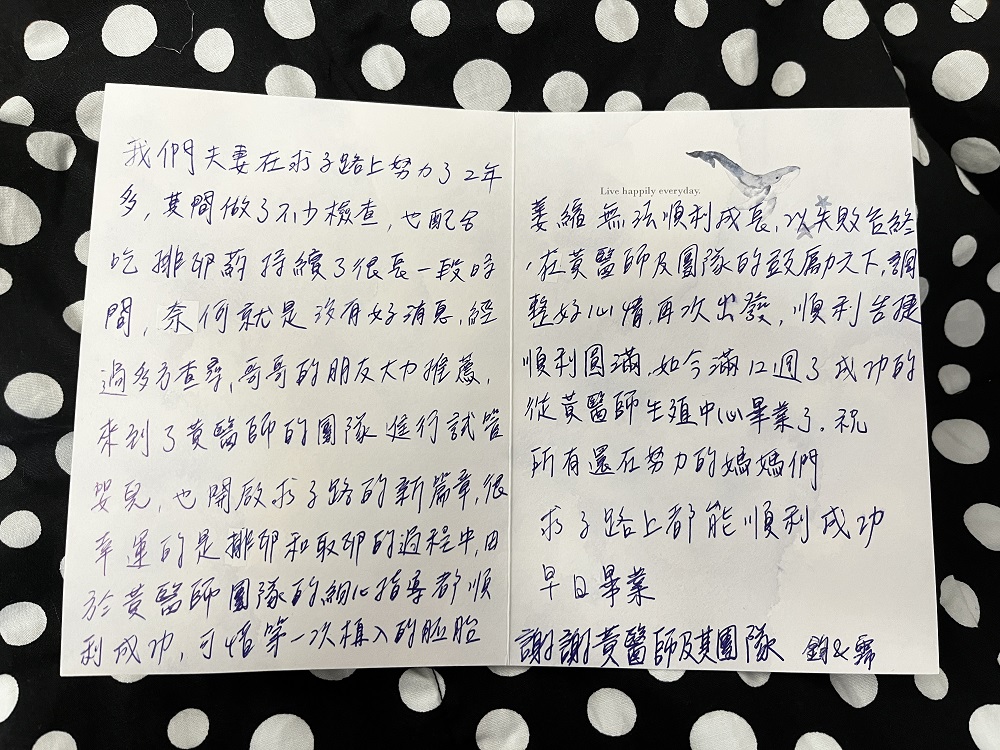 我們夫妻在求子路上努力了2年
多，其間做了不少檢查，也配合
吃排卵藥持續了很長一段時
間，奈何就是沒有好消息，經
過多方查尋，哥哥的朋友大力推薦，
來到了黃醫師的團隊進行試管
嬰兒，也開啟求子路的新篇章，很
幸運的是排卵和取卵的過程中，由
於黃醫師團隊的細心指導都順
利成功，可惜第一次植入的胚胎
Live happily everyday.
萎縮無法順利成長，以失敗告終
，在黃醫師及團隊的鼓勵之下，調
整好心情，再次出發，順利告捷
順利圓滿，如今滿12週了成功的
從黃醫師生殖中心畢業了，祝
所有還在努力的媽媽們
求子路上都能順利成功
早日畢業
謝謝黃醫師及其團隊
&